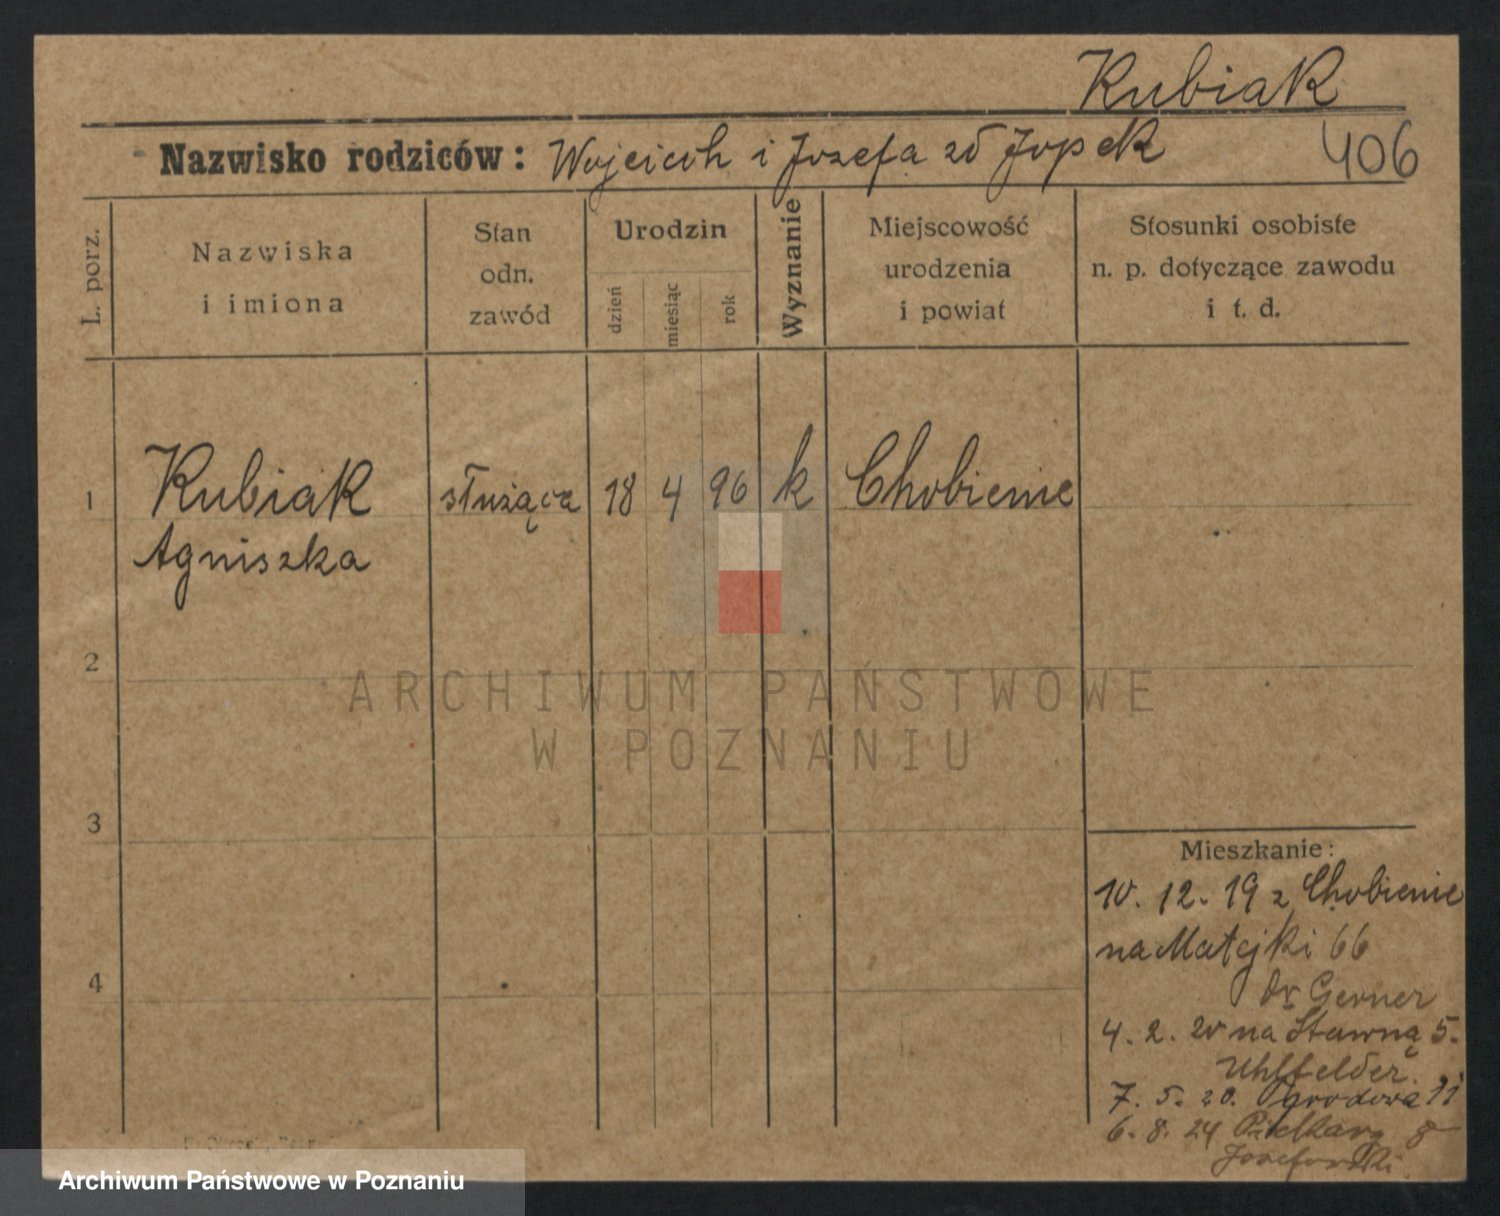 Kubiak
Nazwisko rodziców: Wojciech i Jozefa zd Jopek 406
L. porz.
Nazwiska i imiona
Stan odn. zawód
Urodzin
dzień miesiąc rok
Wyznanie
Miejscowość urodzenia i powiat
Stosunki osobiste n. p. dotyczące zawodu i t. d.
1 Kubiak służąca 18 4 96 k Chobienie
Agniszka
2
3
4
ARCHIWUM PAŃSTWOWE
W POZNANIU
Mieszkanie:
10. 12. 19 z Chobienie
na Matejki 66
dr Gerner
4. 2. 20 na Stawną 5.
Uhlfelder.
7. 5. 20. Ogrodowa 11
6. 8. 24 Piekary 8
Archiwum Państwowe w Poznaniu